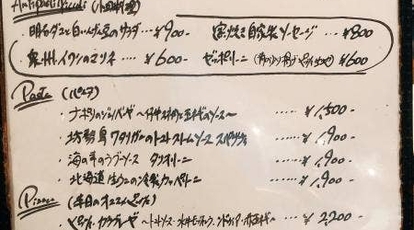 Antipasti Piccoli (小前料理)
明石ダコと白いんげん豆のサラダ … ¥900-
窯焼き自家製ソーセージ … ¥800
泉州イワシのマリネ … ¥600-
ゼッポリーニ ¥600
Pasta (パスタ)
ナポリのジェノベーゼ ～仔牛 玉ねぎのソース～ …… ¥1,500-
坊勢島ワタリガニのトマトクリームソース スパゲティ …… ¥1,900-
海の幸のラグーソース タリオリーニ …… ¥1,900-
北海道生ウニの冷製カッペリーニ …… ¥1,900-
Pizza (本日のオススメピッツァ)
ピッツァ カラブレーゼ ～トマトソース・水牛モッツァレラ、ンドゥイヤ・赤玉ねぎ～ … ¥2,200-